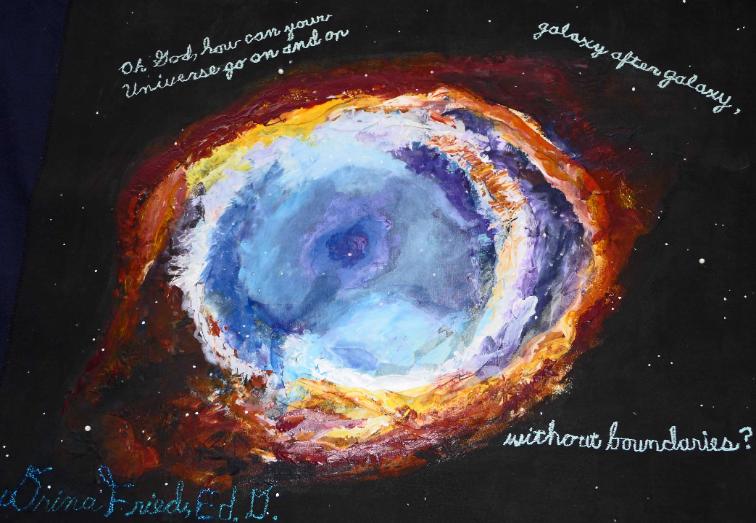 Oh God, how can your
Universe go on and on
galaxy after galaxy,
without boundaries?
Orina Fried, Ed. D.